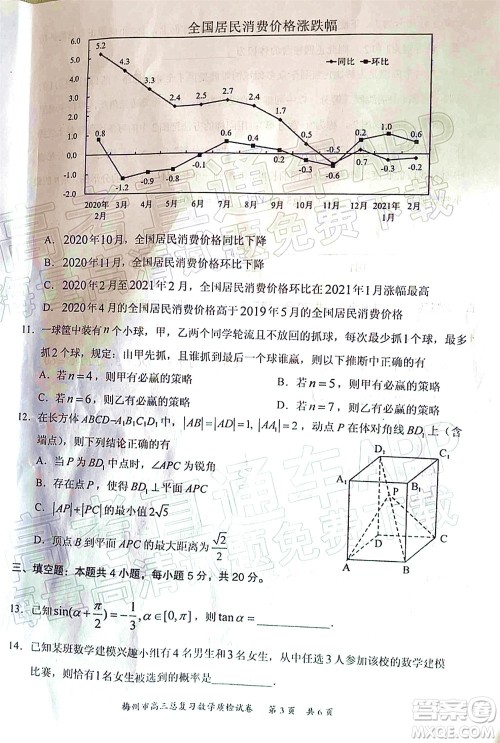 全国居民消费价格涨跌幅
6.0
5.0
4.0
3.0
2.0
1.0
0.0
-1.0
-2.0
同比 环比
5.2 4.3 3.3 2.4 2.5 2.7 2.4 1.7 0.5 0.2 -0.2
0.8 -1.2 -0.9 -0.8 0.6 0.4 0.2 -0.3 -0.6 0.7 1.0 0.6
2020年2月 3月 4月 5月 6月 7月 8月 9月 10月 11月 12月 2021年1月 2月
A．2020年10月，全国居民消费价格同比下降
B．2020年10月，全国居民消费价格环比下降
C．2020年2月至2021年2月，全国居民消费价格环比在2021年1月涨幅最高
D．2020年4月的全国居民消费价格高于2019年5月的全国居民消费价格
11．一球筐中装有n个小球，甲，乙两个同学轮流且不放回的抓球，每次最少抓1个球，最多
抓2个球，规定：由甲先抓，且抓到最后一个球者谁赢，那么以下推断中正确的有
A．若n=4，则甲有必赢的策略 B．若n=7，则乙有必赢的策略
C．若n=6，则乙有必赢的策略 D．若n=9，则甲有必赢的策略
12．在长方体ABCD-A₁B₁C₁D₁中，|AB|=|AD|=3，|AA₁|=3√2，动点P在体对角线BD₁上（含
端点），则下列结论正确的有
A．当P为BD₁中点时，∠APC为锐角
B．存在点P，使得BD₁⊥平面APC
C．|AP|+|PC|的最小值2√5
D．顶点B到平面APC的最大距离为√2/2
A₁ B₁ C₁ D₁ P A B C D
三、填空题：本题共4小题，每小题5分，共20分。
13．已知sin(α+π/2)=-1/3,α∈[0,π]，则tanα=
14．已知某班数学建模兴趣小组有4名男生和3名女生，从中任选3人参加该校的数学建模
比赛，则恰有1名女生被选到的概率是
梅州市高三总复习数学质检试卷 第3页 共6页